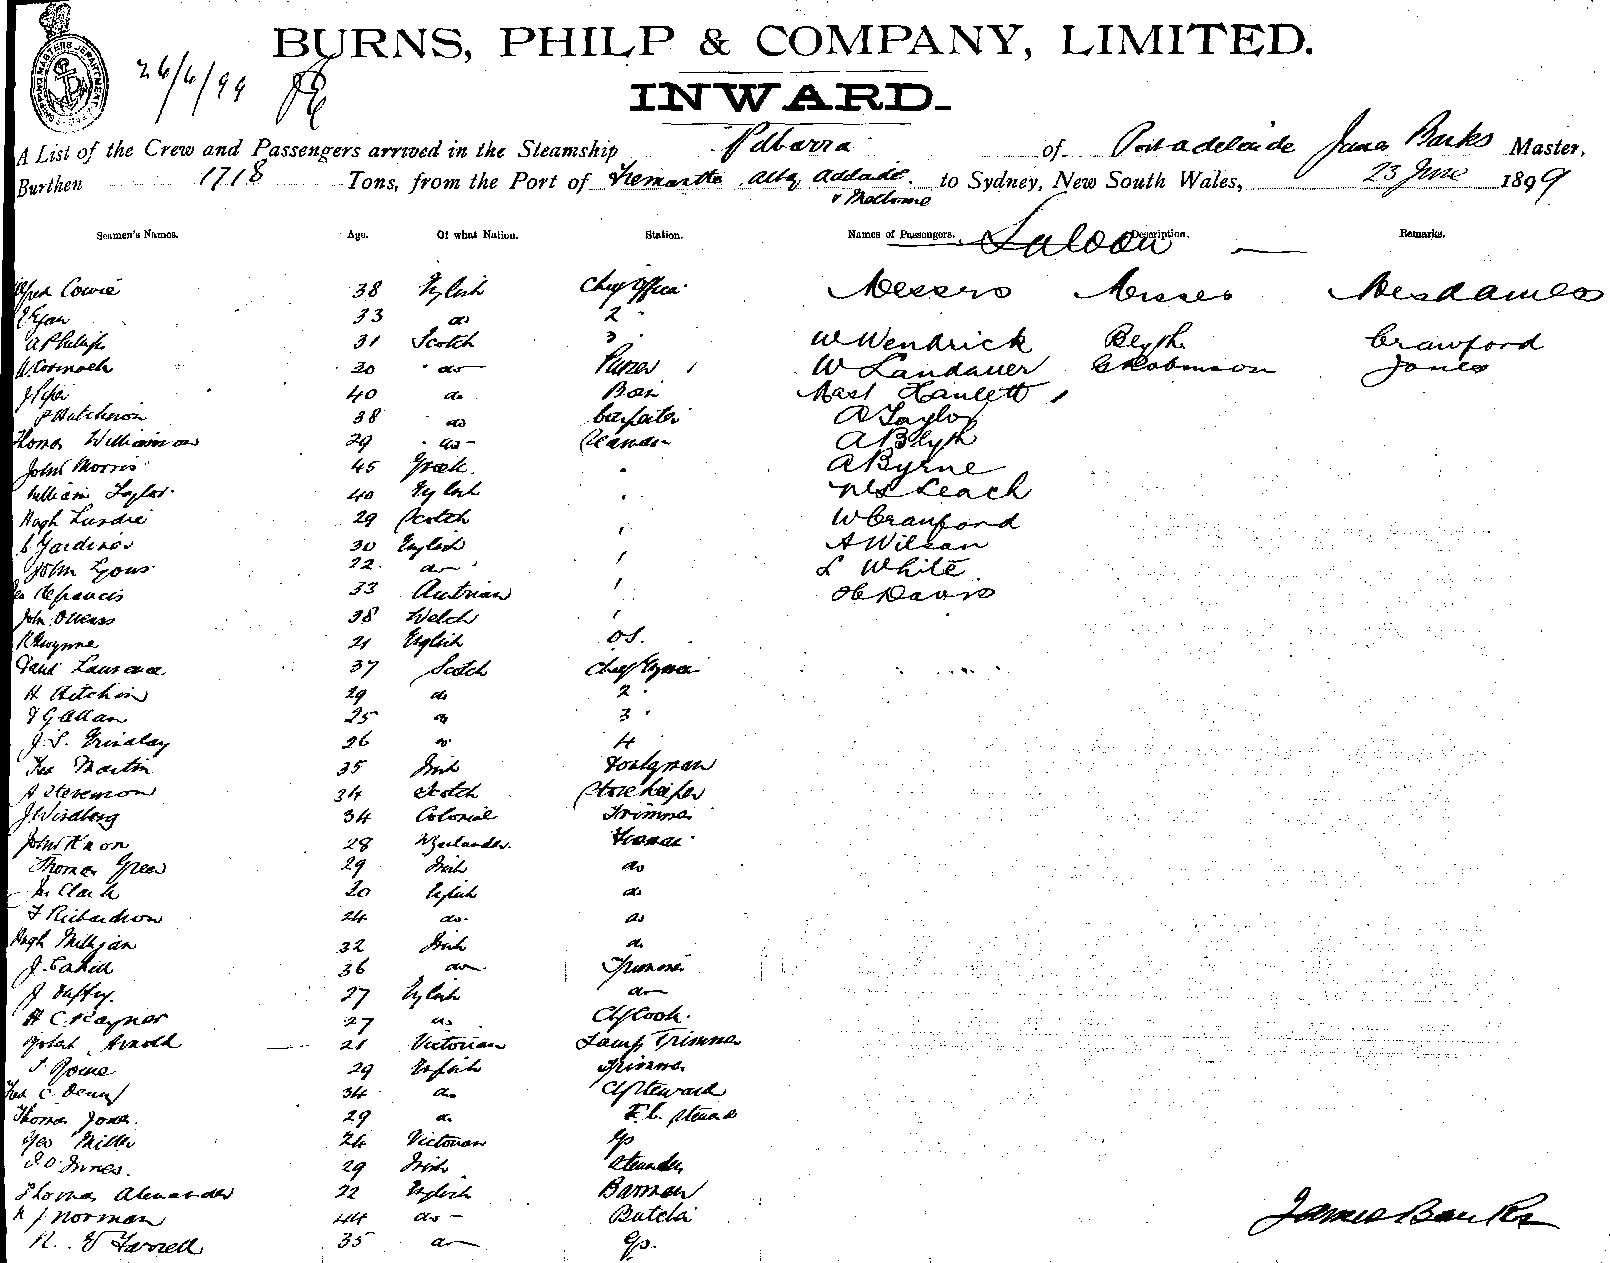 BURNS, PHILP & COMPANY, LIMITED.
26/6/99
INWARD.
A List of the Crew and Passengers arrived in the Steamship Pilbarra of Port Adelaide James Banks Master,
Burthen 1718 Tons, from the Port of Fremantle Alby Adelaide & Melbourne to Sydney, New South Wales, 23 June 1899
Seamen's Names. Age. Of what Nation. Station. Names of Passengers. Description. Remarks.
Saloon
Alfred Cowie 38 English Chief Officer Messrs Misses Mesdames
Egan 33 do 2
A Philip 31 Scotch 3 W Wendrick Blyth Crawford
A. Cormack 20 do Purser W Landauer G Robinson Jones
J Piper 40 do Bosn Mast Hamlett
P Hutchison 38 do Carpenter A Taylor
Thomas Williamson 29 do Seaman A Blyth
John Morris 45 Greek A Byrne
William Taylor 40 English Leach
Hugh Lundie 29 Scotch W Crawford
Gardiner 30 English A Wilson
John Lyons 22 do L White
33 Austrian H C Davis
John Owens 38 Welch
R Gwynne 21 English O.S.
David Lawrence 37 Scotch Chief Engineer
A Aitchison 29 do 2
G Allan 25 do 3
J. S. Grindlay 26 do 4
Jas Martin 35 Irish Donkeyman
A Stevenson 34 Scotch Storekeeper
J. Windberg 34 Colonial Trimmer
John Knox 28 N Zealander. Fireman
Thomas Green 29 Irish do
M. Clark 20 English do
F Richardson 24 do do
Hugh Milligan 32 Irish do
J. Cahill 36 do Trimmer
J Duffey. 27 English do
H C Raynor 27 do Chf Cook.
Robert Arnold 21 Victorian Lamp Trimmer
29 English Trimmer
Fred C Denny 34 do Chf Steward
Thomas Jones. 29 do F. C. Steward
Geo Miller 24 Victorian
Innes. 29 Irish Steward
Thomas Alexander 22 English Barman
J Norman 44 do Butcher
R. W Farrell 35 do
James Banks